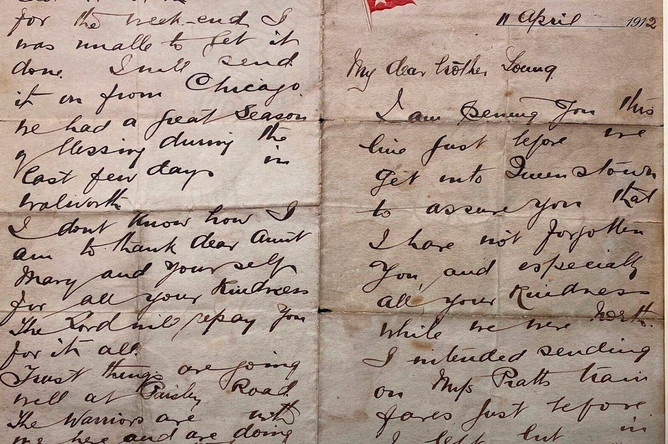 11 April 1912
My dear brother Young
I am penning you this
line just before we
get into Queenstown
to assure you that
I have not forgotten
you, and especially
all your kindness
while we were North.
I intended sending
on Mrs Pratts train
fares just before
I left but in
for the week-end I
was unable to get it
done. I will send
it on from Chicago.
we had a great Season
of blessing during the
last few days in
Walworth.
I dont know how I
am to thank dear Aunt
Mary and yourself
for all your kindness
The Lord will repay you
for it all.
Trust things are going
well at Paisley Road.
The Warriors are with
us here and are doing